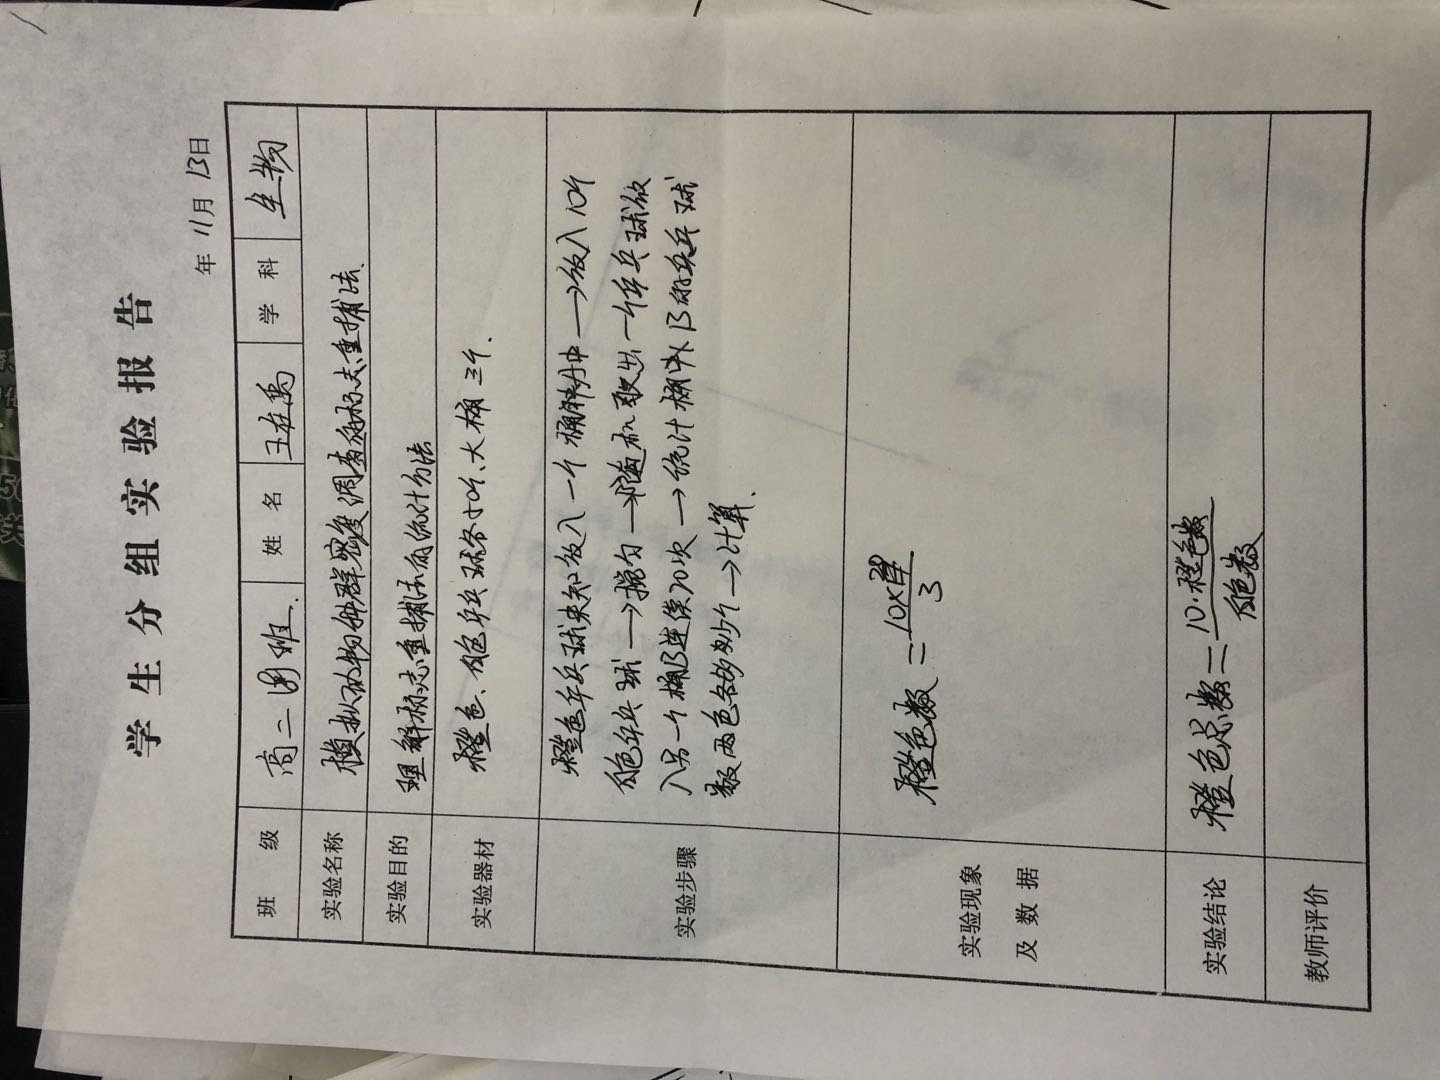 学生分组实验报告
年 11月 13日
班 级 高二 班. 姓 名 王在禹 学 科 生物
实验名称 模拟动物种群密度调查的标志重捕法.
实验目的 理解标志重捕法的统计方法
实验器材 橙色、白色乒乓球各 大桶 三个.
实验步骤 橙色乒乓球未知放入一个桶 中→放入10个
白色乒乓球→搅匀→随机取出一个乒乓球放
入另一个桶B连续 次→统计桶 B的乒乓球
数两色各多少个→计算.
实验现象
及 数 据 橙色数=10×20/3
实验结论 橙色总数=10·橙色数/白色数
教师评价